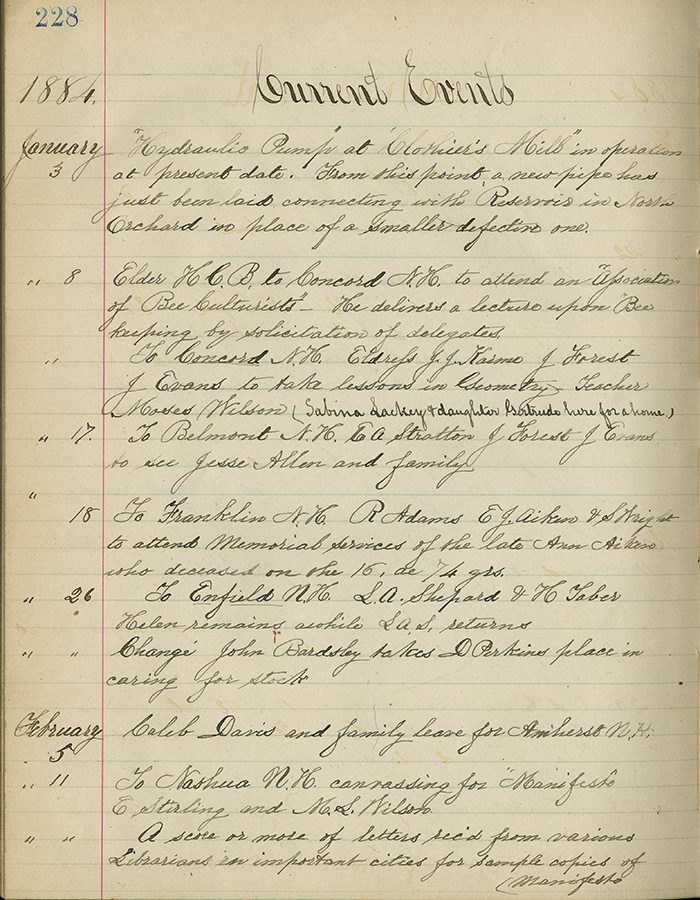 228
1884. Current Events
January "Hydraulic Pump" at "Clothier's Mill" in operation
3 at present date. From this point, a new pipe has
just been laid connecting with Reservoir in North
Orchard in place of a smaller defective one.
" 8 Elder H C. B. to Concord N.H. to attend an "Association
of Bee Culturists" – He delivers a lecture upon Bee
keeping by solicitation of delegates.
" To Concord N.H. Eldress J. J. Kaime J Forest
J Evans to take lessons in Geometry. Teacher
Moses Wilson (Sabina Lackey & daughter Gertrude here for a home.)
" 17. To Belmont N.H. E A Stratton J Forest J Evans
to see Jesse Allen and family
"
18 To Franklin N.H. R Adams E J. Aiken & S Wright
to attend Memorial services of the late Ann Aiken
who deceased on the 16, ae 74 yrs.
" 26 To Enfield N.H. L.A. Shepard & H Taber
Helen remains awhile L A S, returns
" " Change John Bardsley takes D Perkins place in
caring for stock
February Caleb Davis and family leave for Amherst N.H.
5
" 11 To Nashua N.H. canvassing for "Manifesto"
E Stirling and M. L. Wilson
" " A score or more of letters rec'd from various
Librarians in important cities for sample copies of
(Manifesto